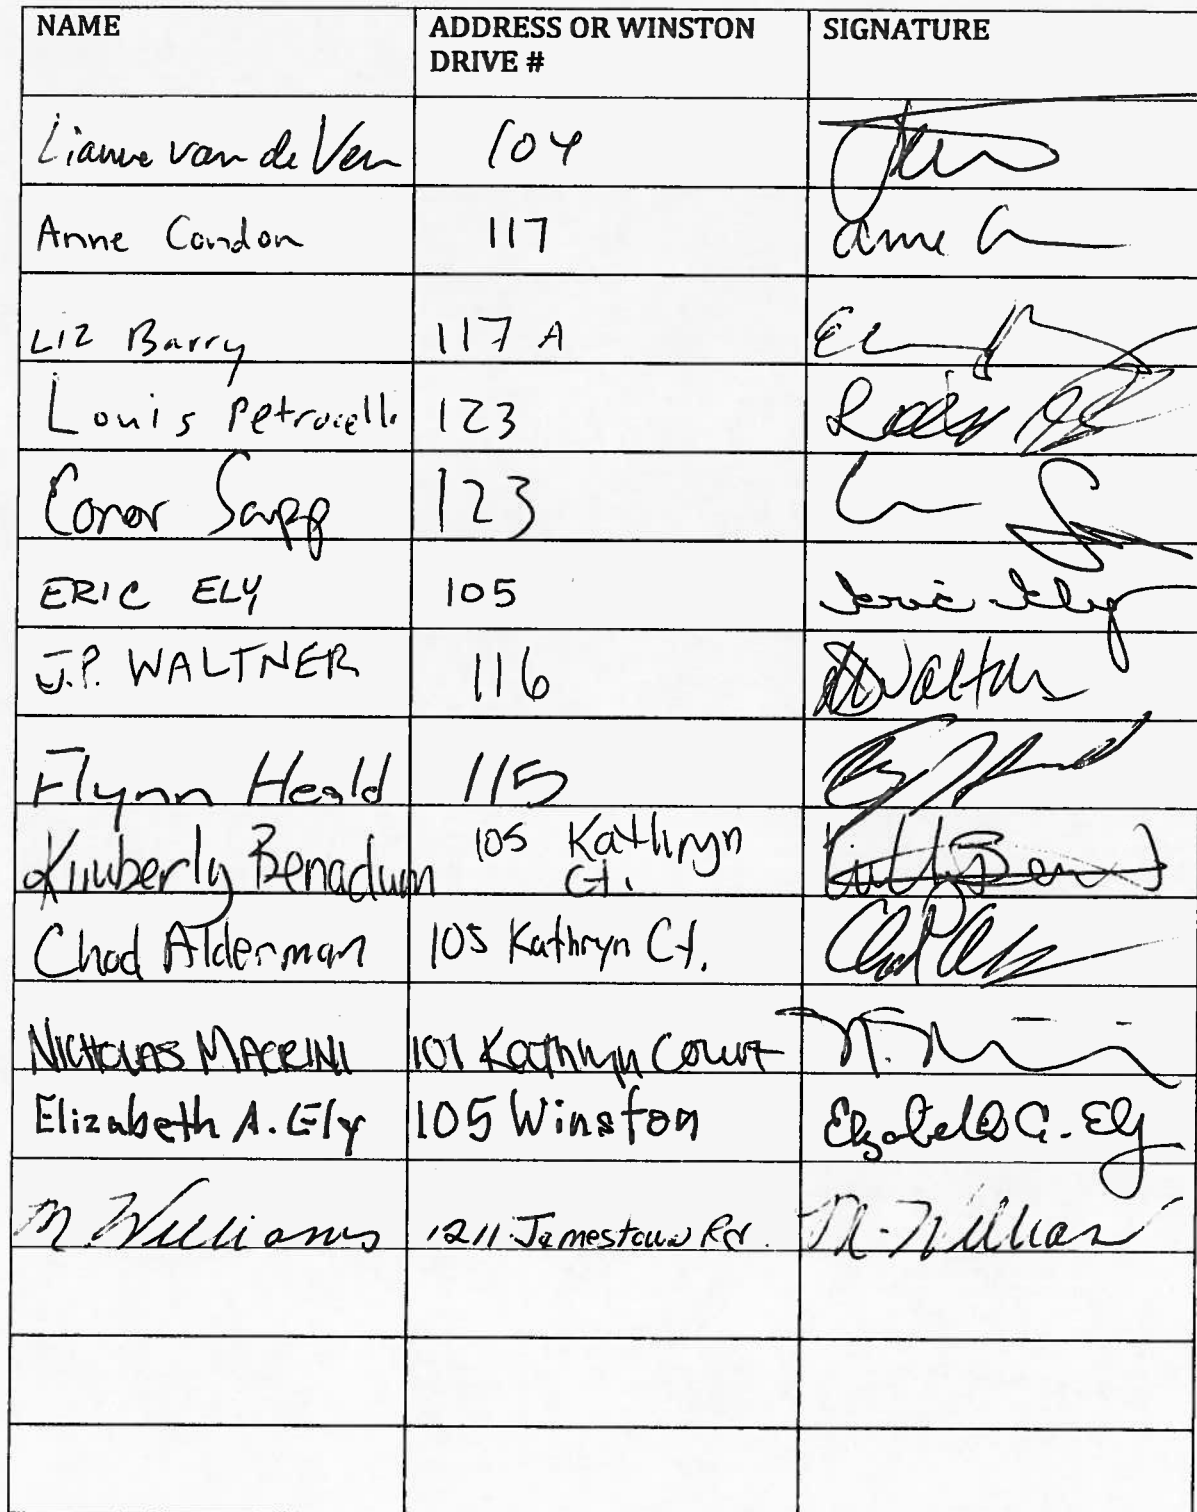 NAME ADDRESS OR WINSTON DRIVE # SIGNATURE
Lianne van de Ven 104
Anne Condon 117 Anne C
LIZ Barry 117 A
Louis Petrocelli 123
Conor Sapp 123
ERIC ELY 105 Eric Ely
J.P. WALTNER 116 Waltner
Flynn Heald 115
Kimberly Benadum 105 Kathryn Ct.
Chad Alderman 105 Kathryn Ct.
NICHOLAS MACRINI 101 Kathryn Court
Elizabeth A. Ely 105 Winston Elizabeth A. Ely
M Williams 1211 Jamestown Rd. M. Williams